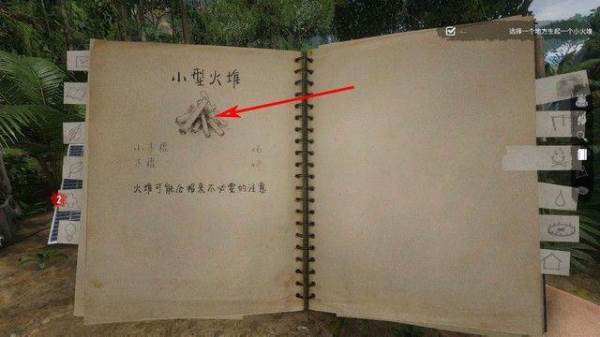 选择一个地方生起一个小火堆
小型火堆
小木棍
木棍
火堆可能会招来不必要的注意
2